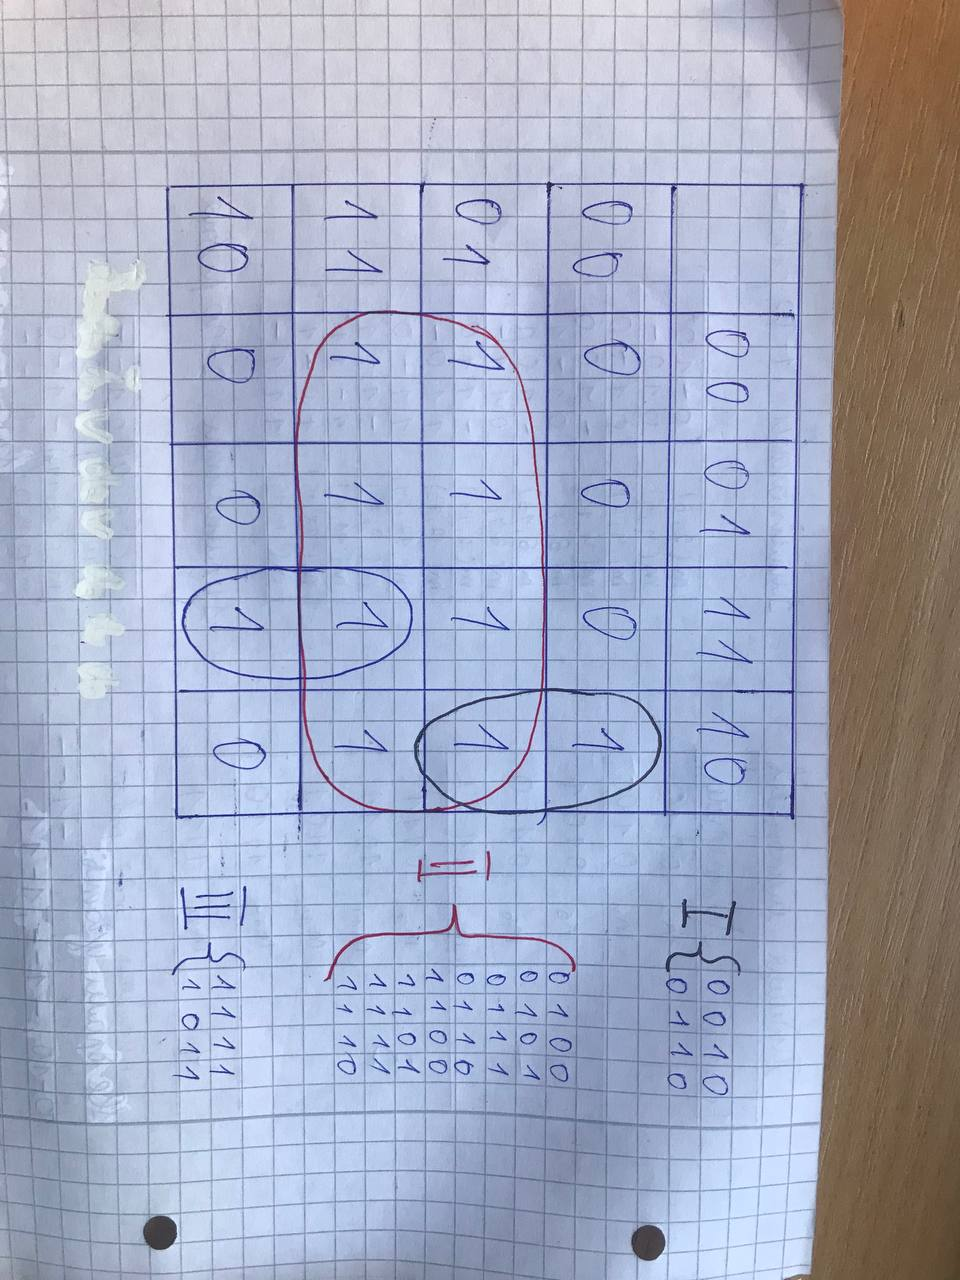 00 01 11 10
00 0 0 0 1
01 1 1 1 1
11 1 1 1 1
10 0 0 1 0
I { 0010
0110
II { 0100
0101
0111
0110
1100
1101
1111
1110
III { 1111
1011